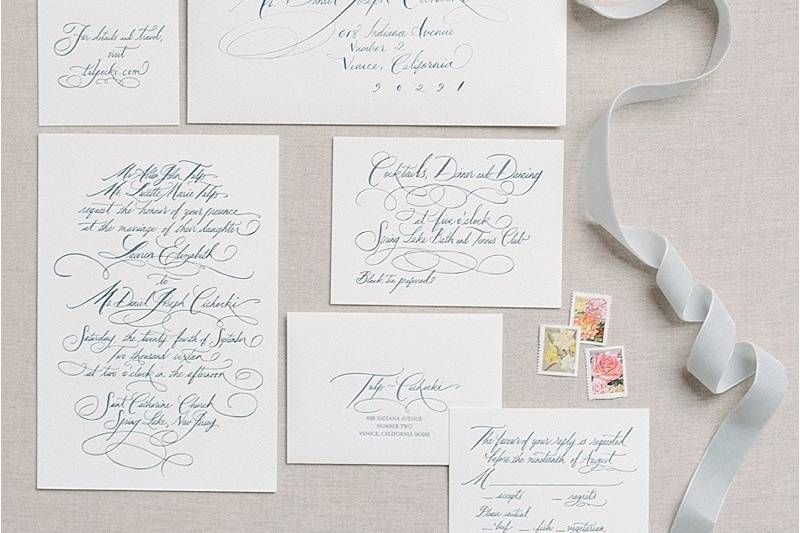 For details and travel,
visit
tulpecki.com
Mr. Daniel Joseph Cichocki
618 Indiana Avenue
Number 2
Venice, California
90291
Mr. Allan John Tulp
Ms. Lizette Marie Tulp
request the honour of your presence
at the marriage of their daughter
Lauren Elizabeth
to
Mr. Daniel Joseph Cichocki
Saturday, the twenty-fourth of September
two thousand sixteen
at two o'clock in the afternoon
Saint Catharine Church
Spring Lake, New Jersey
Cocktails, Dinner and Dancing
at five o'clock
Spring Lake Bath and Tennis Club
Black tie preferred
Tulp-Cichocki
618 INDIANA AVENUE
NUMBER TWO
VENICE, CALIFORNIA 90291
The favour of your reply is requested
before the nineteenth of August
M
accepts regrets
Please initial
beef fish vegetarian